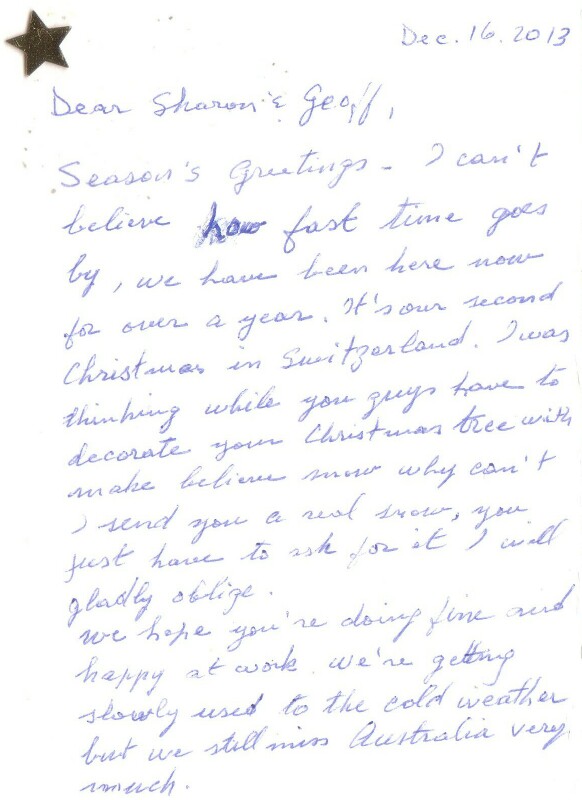 Dec. 16. 2013
Dear Sharon & Geoff,
Season's Greetings - I can't
believe how fast time goes
by, we have been here now
for over a year. It's our second
Christmas in Switzerland. I was
thinking while you guys have to
decorate your Christmas tree with
make believe snow why can't
I send you a real snow, you
just have to ask for it I will
gladly oblige.
We hope you're doing fine and
happy at work. We're getting
slowly used to the cold weather
but we still miss Australia very
much.